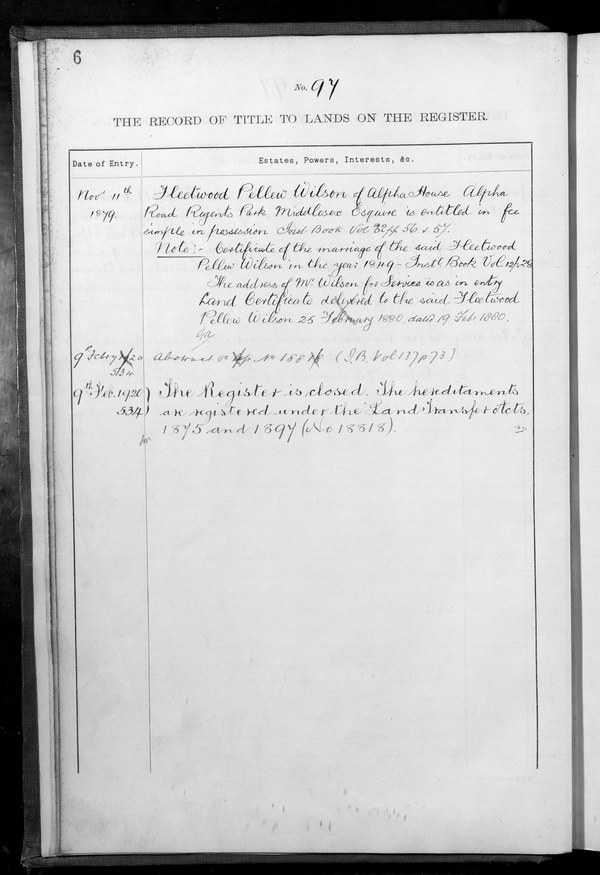 6
No. 97
THE RECORD OF TITLE TO LANDS ON THE REGISTER.
Date of Entry.
Estates, Powers, Interests, &c.
Novr 11th
1879.
Fleetwood Pellew Wilson of Alpha House Alpha
Road Regents Park Middlesex Esquire is entitled in fee
simple in possession Inst Book Vol 32/4 56 & 57.
Note:- Certificate of the marriage of the said Fleetwood
Pellew Wilson in the year 1849 - Inst Book Vol 12/1-28
The address of Mr Wilson for Service is as in entry
Land Certificate delivered to the said Fleetwood
Pellew Wilson 25 February 1880. dated 19 Feb: 1880.
9th Febry 20
534
Abstract (I.B. Vol 137 p 73)
9th Feb. 1920
534
The Register is closed. The hereditaments
are registered under the Land Transfer Acts,
1875 and 1897 (No 18818).